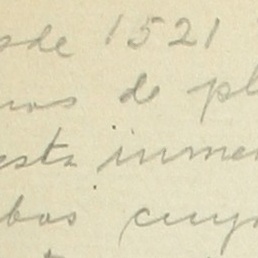 sde 1521
nos de pl
esta inmen
bos cuy